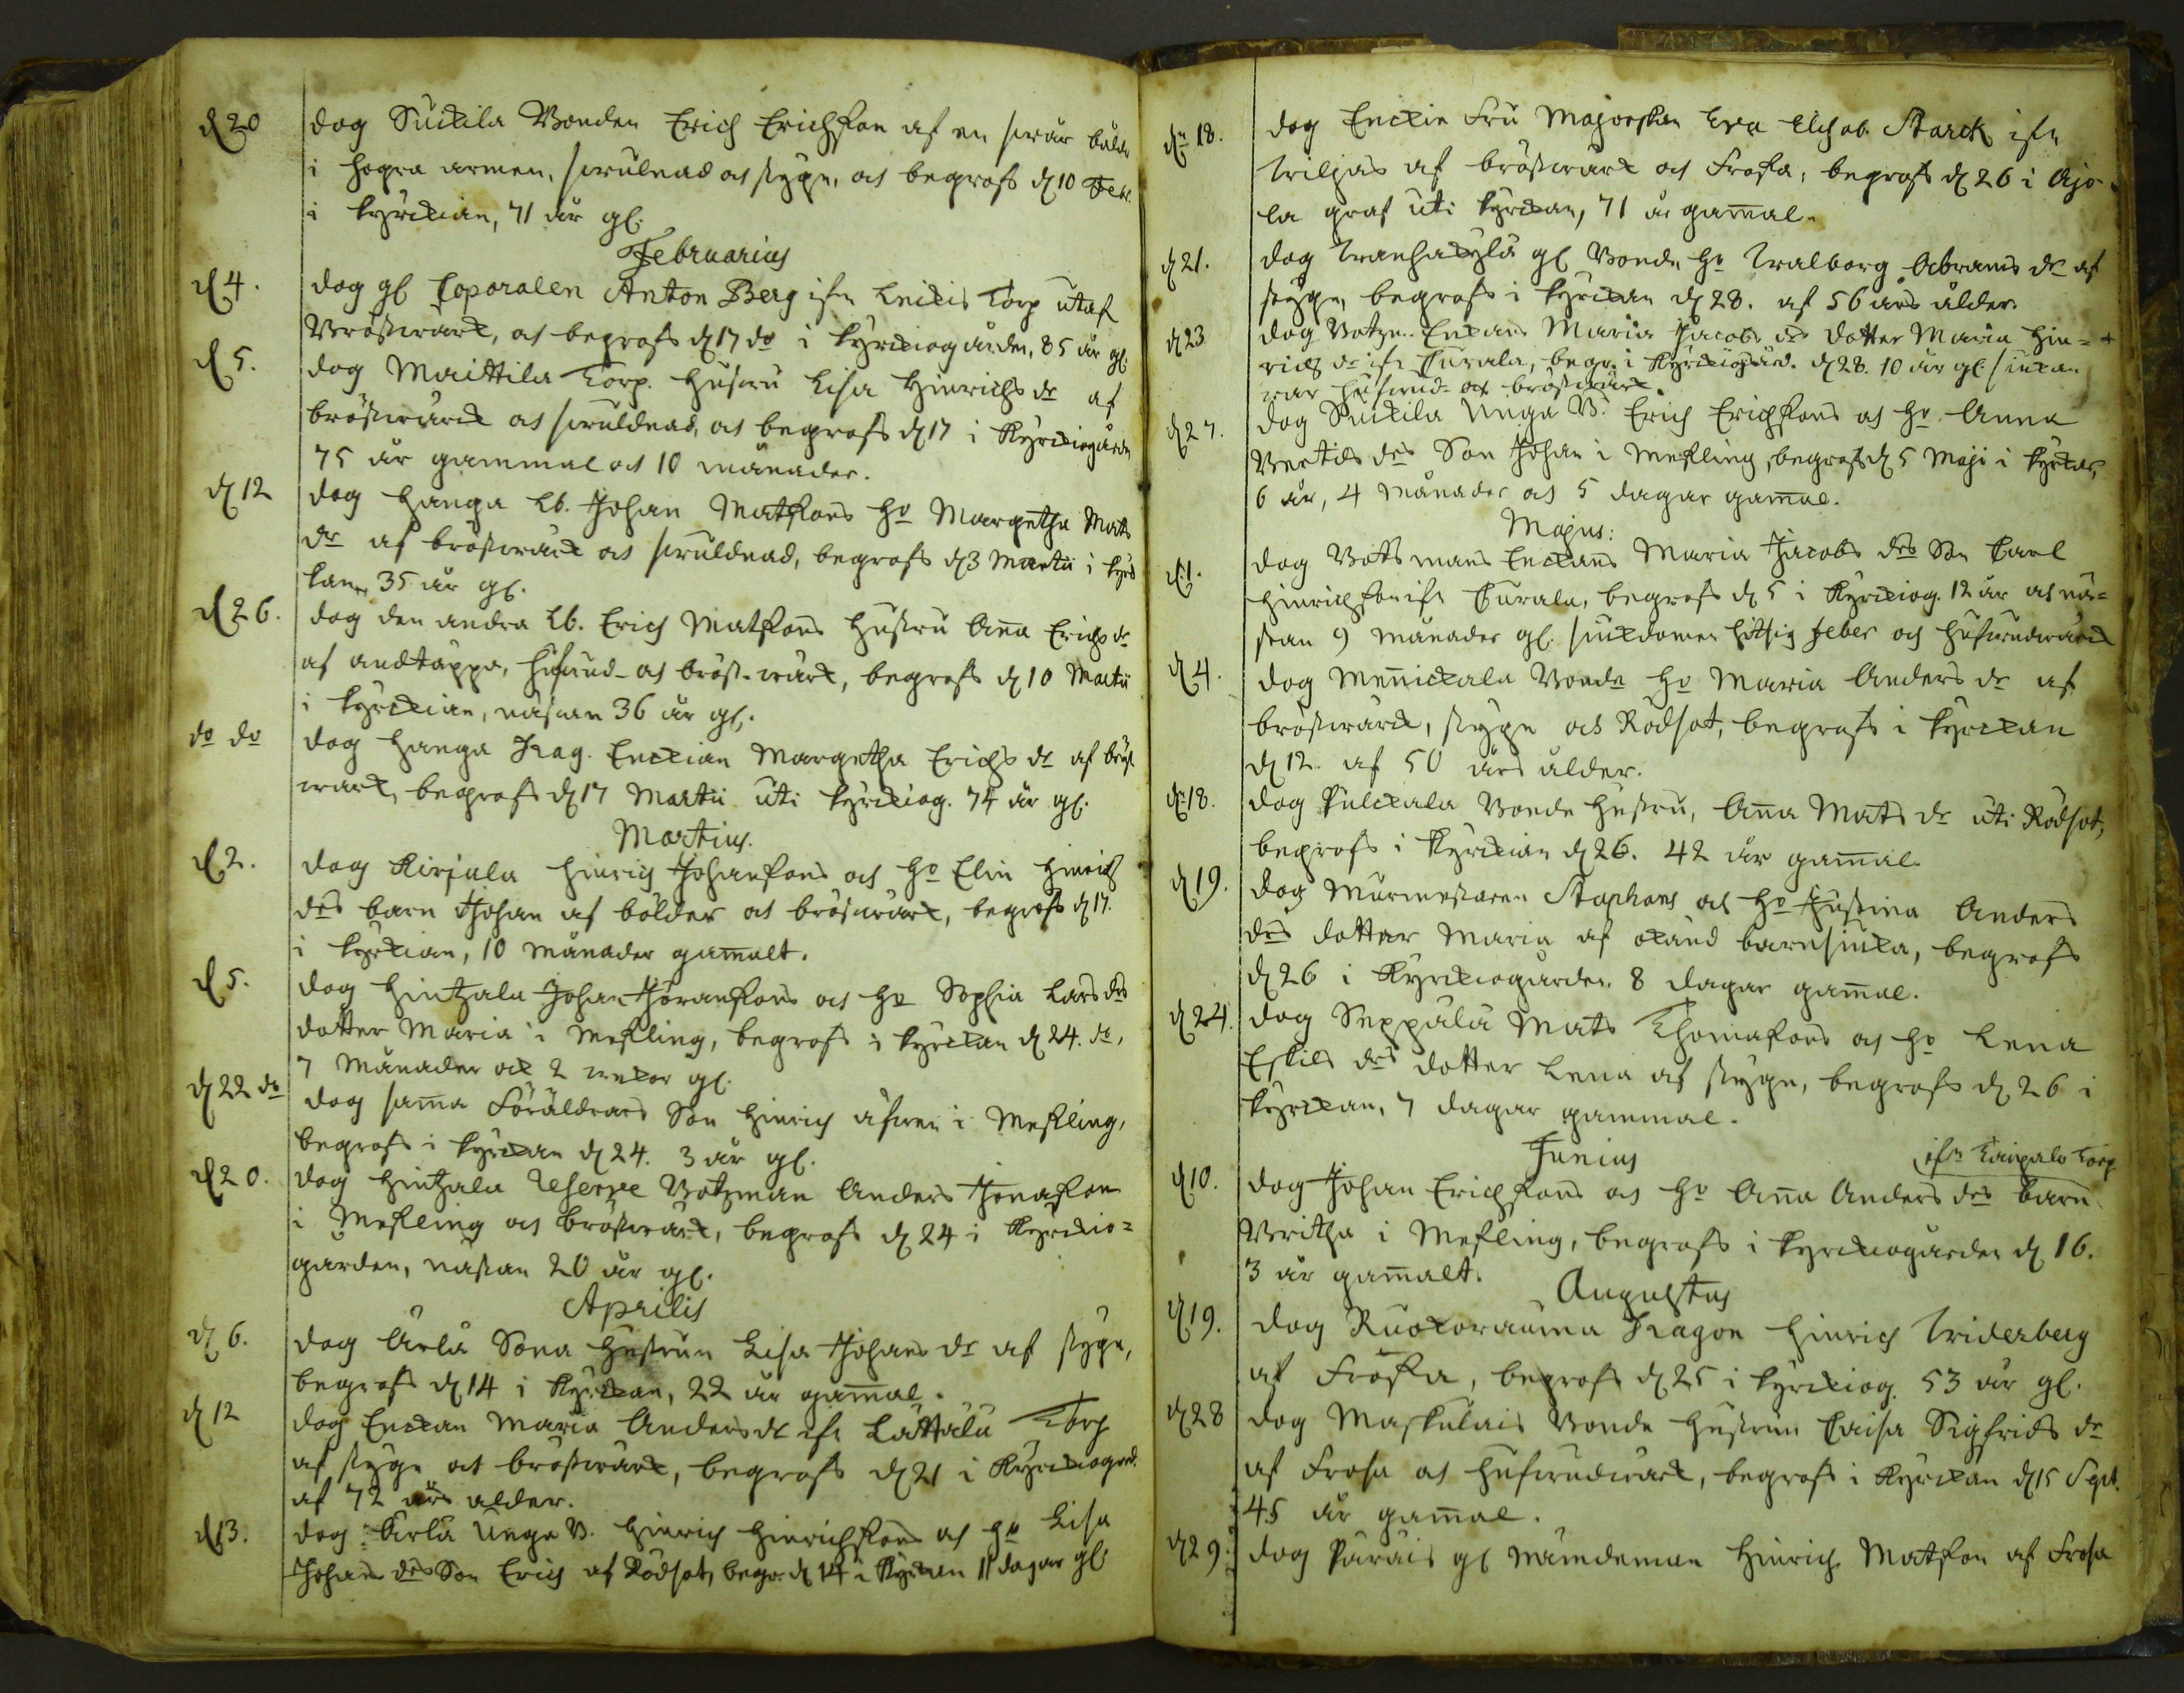 d 20 dog Suikila Bonden Erich Erichsson af en swår bålde
i högra armen, swulnad och stygn, och begrofs d 10 Febr.
i kyrckian, 71 år gl.
Februarius
d 4. dog gl Coporalen Anton Berg ifrn Leikis Torp utaf
Bröstwärck, och begrofs d 17 do i kyrckiogården, 85 år gl.
d 5. dog Maittila Torp. Hustru Lisa Hinrichs dr af
bröstwärck och swuldnad, och begrofs d 17 i Kyrckiogården
75 år gammal och 10 månader.
d 12 dog Hanga Lb. Johan Matssons Ho Margetha Mats
dr af bröstwärck och swuldnad, begrofs d 3 Martii i kyrc
kan, 35 år gl.
d 26. dog den andra Lb. Erich Matssons Hustru Aña Erichs dr
af andtäppa, hufwud- och bröst-wärck, begrofs d 10 Martii
i kyrckian, nästan 36 år gl.
do do dog Hanga Drag. Enckian Margetha Erichs dr af bröst
wärck, begrofs d 17 Martii uti kyrckiog. 74 år gl.
Martius.
d 2. dog Kirjala Hinrich Johanssons och Ho Elin Hinrichs
drs barn Johan af bölder och bröstwärck, begrofs d 17.
i kyrckian, 10 månader gam̄alt.
d 5. dog Hintzala Johan Jöranssons och Ho Sophia Lars drs
dotter Maria i Messling, begrofs i kyrckan d 24. do,
7 månader och 2 wekor gl.
d 22 do dog sam̄a Föräldrars Son Hinrich äfwen i Messling,
begrofs i kyrckan d 24. 3 år gl.
d 20. dog Hintzala Reserve Botzman Anders Jonasson
i Messling och bröstwärck, begrofs d 24 i Kyrckio=
gården, nästan 20 år gl.
Aprilis
d 6. dog Ärlä Sona Hustrun Lisa Johans dr af stygn,
begrofs d 14 i Kyrckan, 22 år gam̄al.
d 12 dog Enckan Maria Anders dr ifrn Lättälä Torp
af stygn och bröstwärck, begrofs d 21 i Kyrckiogård.
af 72 års ålder.
d 13. dog Ärlä Unga B. Hinrich Hinrichssons och Ho Lisa
Johans drs Son Erich af Rödsot, begr. d 14 i Kyrckan 11 dagar gl.
dn 18. dog Enckie Fru Majorskan Eva Elisab. Starck ifrn
Wiljas af bröstwärck och Frossa, begrofs d 26 i Ajo-
la graf uti kyrckan, 71 år gam̄al.
d 21. dog Wanhakylä gl Bonde Ho Walborg Abrams dr af
stygn, begrofs i kyrckan d 28. af 56 års ålder.
d 23 dog Botzm. Enckans Maria Jacobs drs dotter Maria Hin=
richs dr ifrn Eurala, begr. i Kyrckiogård. d 28. 10 år gl. siukan
war hufwud- och bröstwärck.
d 27. dog Suikila Unga B. Erich Erichssons och Ho Anna
Bertils drs Son Johan i Messling, begrofs d 5 Maji i kyrckan,
6 år, 4 månader och 5 dagar gam̄al.
Majus:
d 1. dog Båtsmans Enckans Maria Jacobs drs Son Carl
Hinrichsson ifrn Eurala, begrofs d 5 i Kyrckiog. 12 år och nä=
stan 9 månader gl. siukdomen hittsig feber och hufwudwärck
d 4. dog Meñickala Bonde Ho Maria Anders dr af
bröstwärck, stygn och Rödsot, begrofs i kyrckan
d 12. af 50 års ålder.
dn 18. dog Pulckala Bonde Hustru, Aña Mats dr uti Rödsot,
begrofs i kyrckian d 26. 42 år gam̄al.
d 19. dog Murmestaren Staphans och Ho Justina Anders
drs dotter Maria af okänd barnsiuka, begrofs
d 26 i Kyrckiogården. 8 dagar gam̄al.
d 24. dog Seppälä Mats Thomassons och Ho Lena
Eskils drs dotter Lena af stygn, begrofs d 26 i
kyrckan, 7 dagar gammal.
Junius
ifrn Torp
d 10. dog Johan Erichssons och Ho Aña Anders drs barn
Britha i Messling, begrofs i kyrckiogården d 16.
3 år gam̄alt.
Augustus
d 19. dog Ruokorauma Dragon Hinrich Widerberg
af Frossa, begrofs d 25 i kyrckiog. 53 år gl.
d 28 dog Maskulais Bonde Hustrun Caisa Sigfrids dr
af Frosa och hufwudwärck, begrofs i Kyrckan d 15 Sept.
45 år gam̄al.
d 29. dog Päräis gl Nämdeman Hinrich Matsson af Frosa